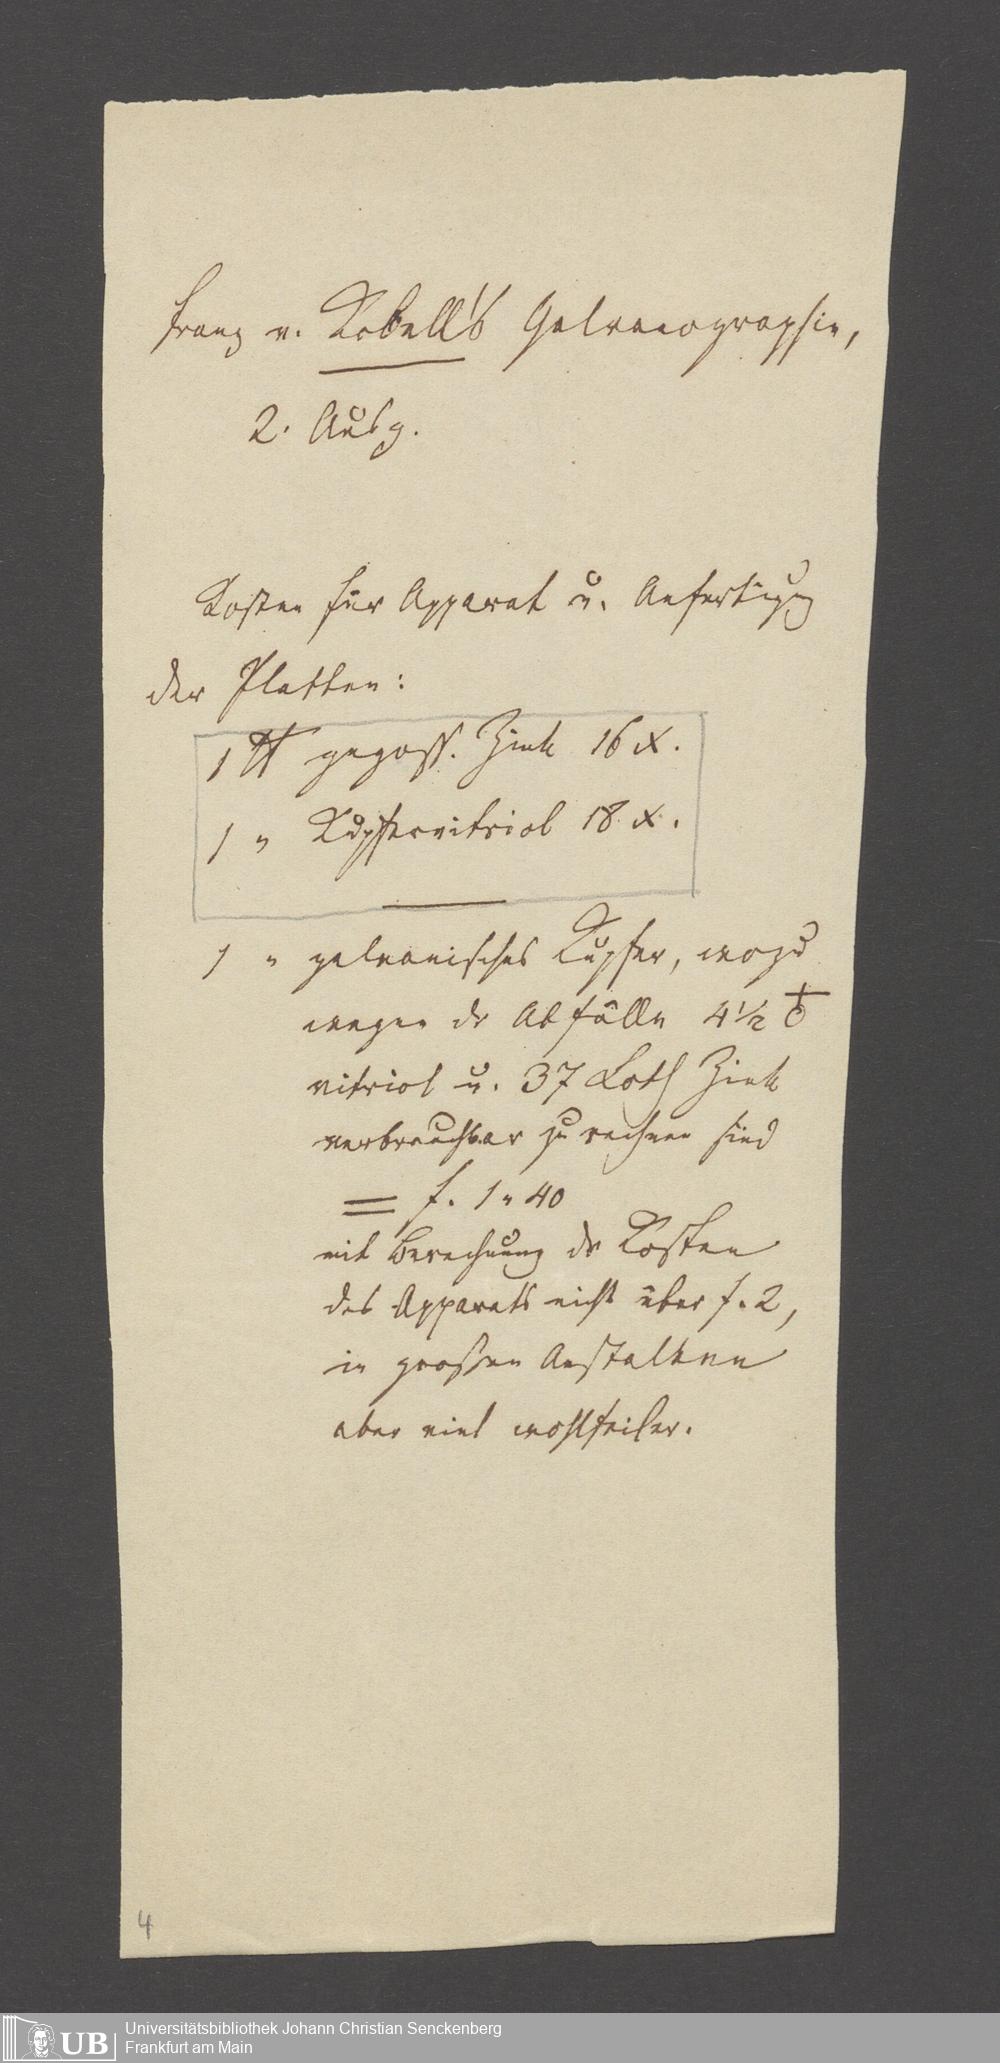 Franz v. Kobell's Galvanographie,
2. Ausg.
Kosten für Apparat u. Anfertigung
der Platten:
1 ℔ gegoss. Zink 16 x.
1 " Kupfervitriol 18 x.
1 " galvanisches Kupfer, wozu
wegen der Abfälle 4 1/2 ♁
vitriol u. 37 Loth Zink
verbrauchbar zu rechnen sind
= f. 1 " 40
mit Berechnung der Kosten
des Apparats nicht über f. 2,
in großen Anstalten
aber viel wohlfeiler.
4
UB Universitätsbibliothek Johann Christian Senckenberg
Frankfurt am Main